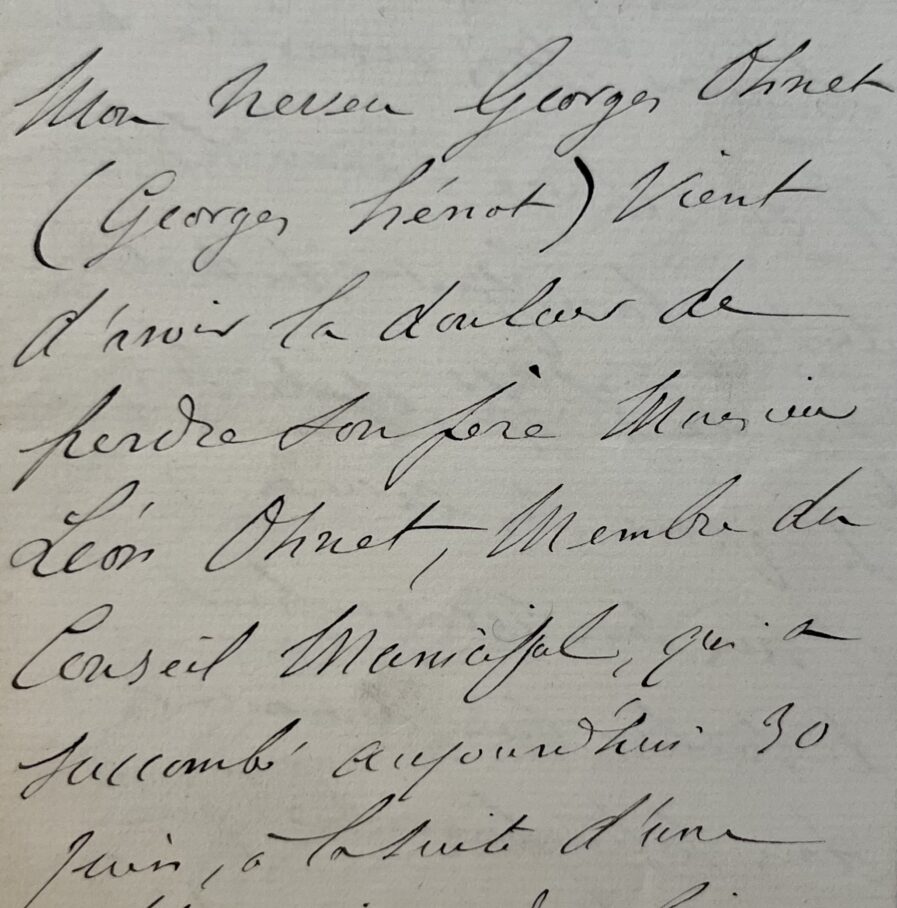 Mon neveu Georges Ohnet
(Georges hénot) Vient
d'avoir la douleur de
perdre son père Monsieur
Léon Ohnet, Membre du
Conseil Municipal, qui a
succombé aujourd'hui 30
juin, à la suite d'une